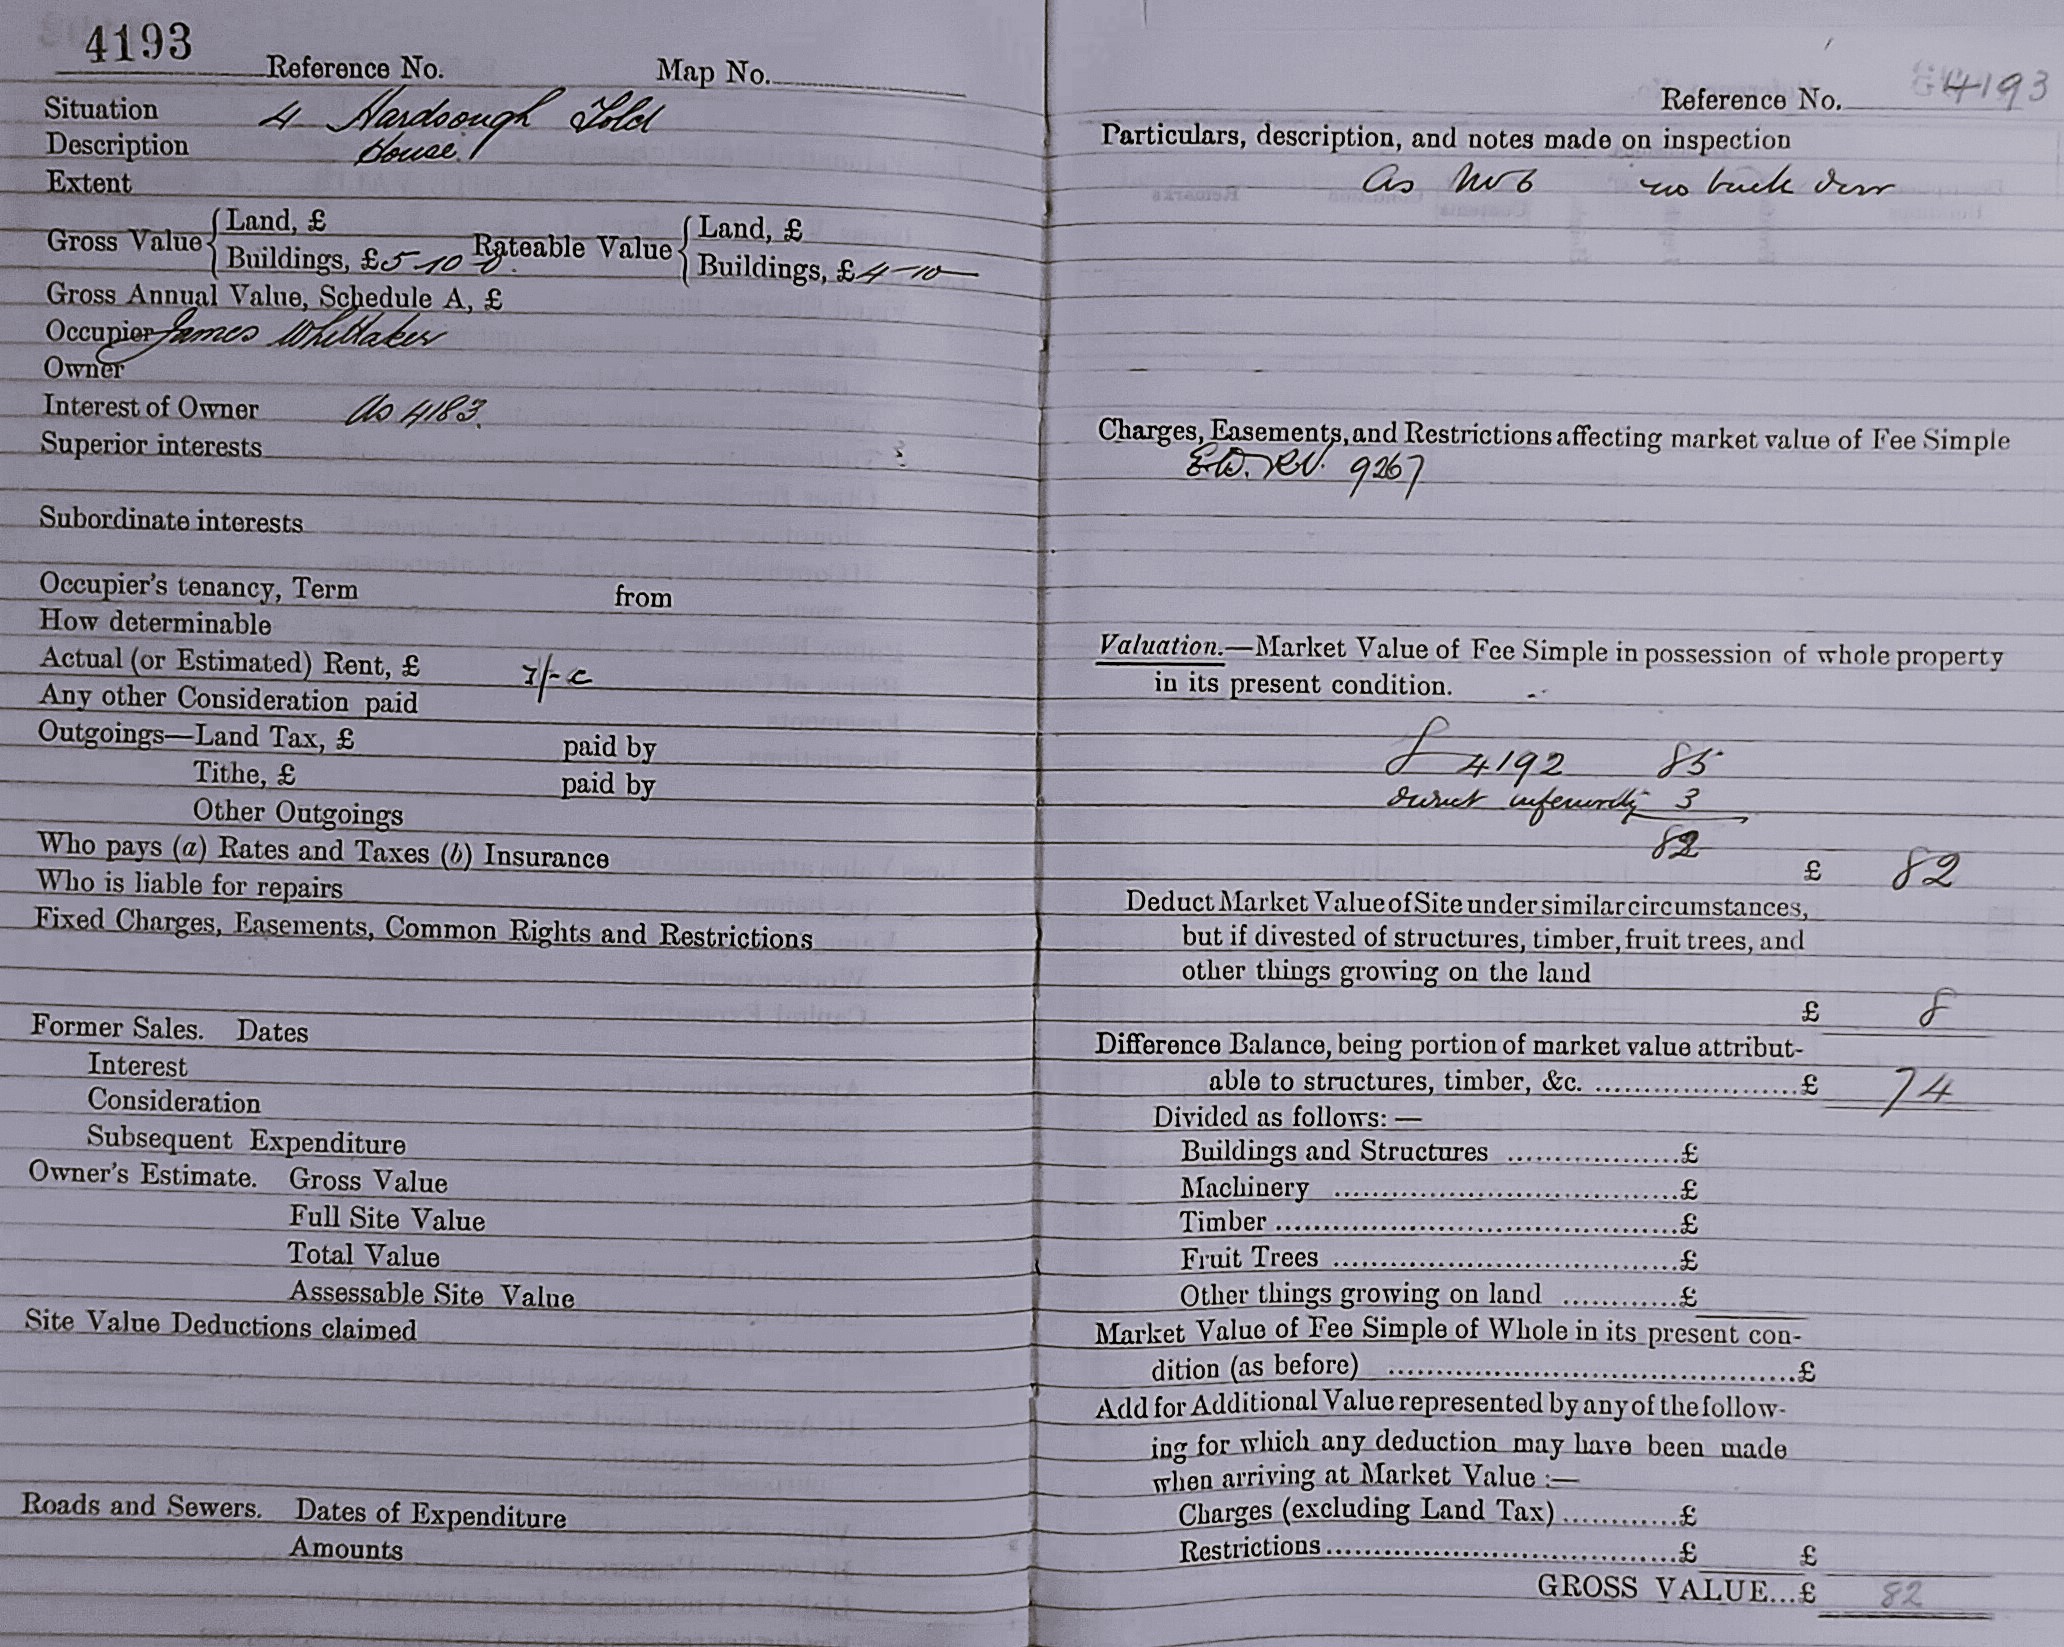 4193
Reference No. Map No.
Situation 4 Hardsough Fold
Description House.
Extent
Gross Value { Land, £
Buildings, £ 5-10-0. Rateable Value { Land, £
Buildings, £ 4-10-
Gross Annual Value, Schedule A, £
Occupier James Whittaker
Owner
Interest of Owner As 4183.
Superior interests
Subordinate interests
Occupier's tenancy, Term from
How determinable
Actual (or Estimated) Rent, £
Any other Consideration paid
Outgoings—Land Tax, £ paid by
Tithe, £ paid by
Other Outgoings
Who pays (a) Rates and Taxes (b) Insurance
Who is liable for repairs
Fixed Charges, Easements, Common Rights and Restrictions
Former Sales. Dates
Interest
Consideration
Subsequent Expenditure
Owner's Estimate. Gross Value
Full Site Value
Total Value
Assessable Site Value
Site Value Deductions claimed
Roads and Sewers. Dates of Expenditure
Amounts
Reference No. 4193
Particulars, description, and notes made on inspection
As No 6 no back door
Charges, Easements, and Restrictions affecting market value of Fee Simple
9267
Valuation.—Market Value of Fee Simple in possession of whole property
in its present condition.
4192 85
inferiority 3
82
£ 82
Deduct Market Value of Site under similar circumstances,
but if divested of structures, timber, fruit trees, and
other things growing on the land
£ 8
Difference Balance, being portion of market value attribut-
able to structures, timber, &c. ..................... £ 74
Divided as follows: —
Buildings and Structures .................. £
Machinery .................................... £
Timber .......................................... £
Fruit Trees ..................................... £
Other things growing on land ............ £
Market Value of Fee Simple of Whole in its present con-
dition (as before) .......................................... £
Add for Additional Value represented by any of the follow-
ing for which any deduction may have been made
when arriving at Market Value :—
Charges (excluding Land Tax) ............ £
Restrictions..................................... £ £
GROSS VALUE...£ 82